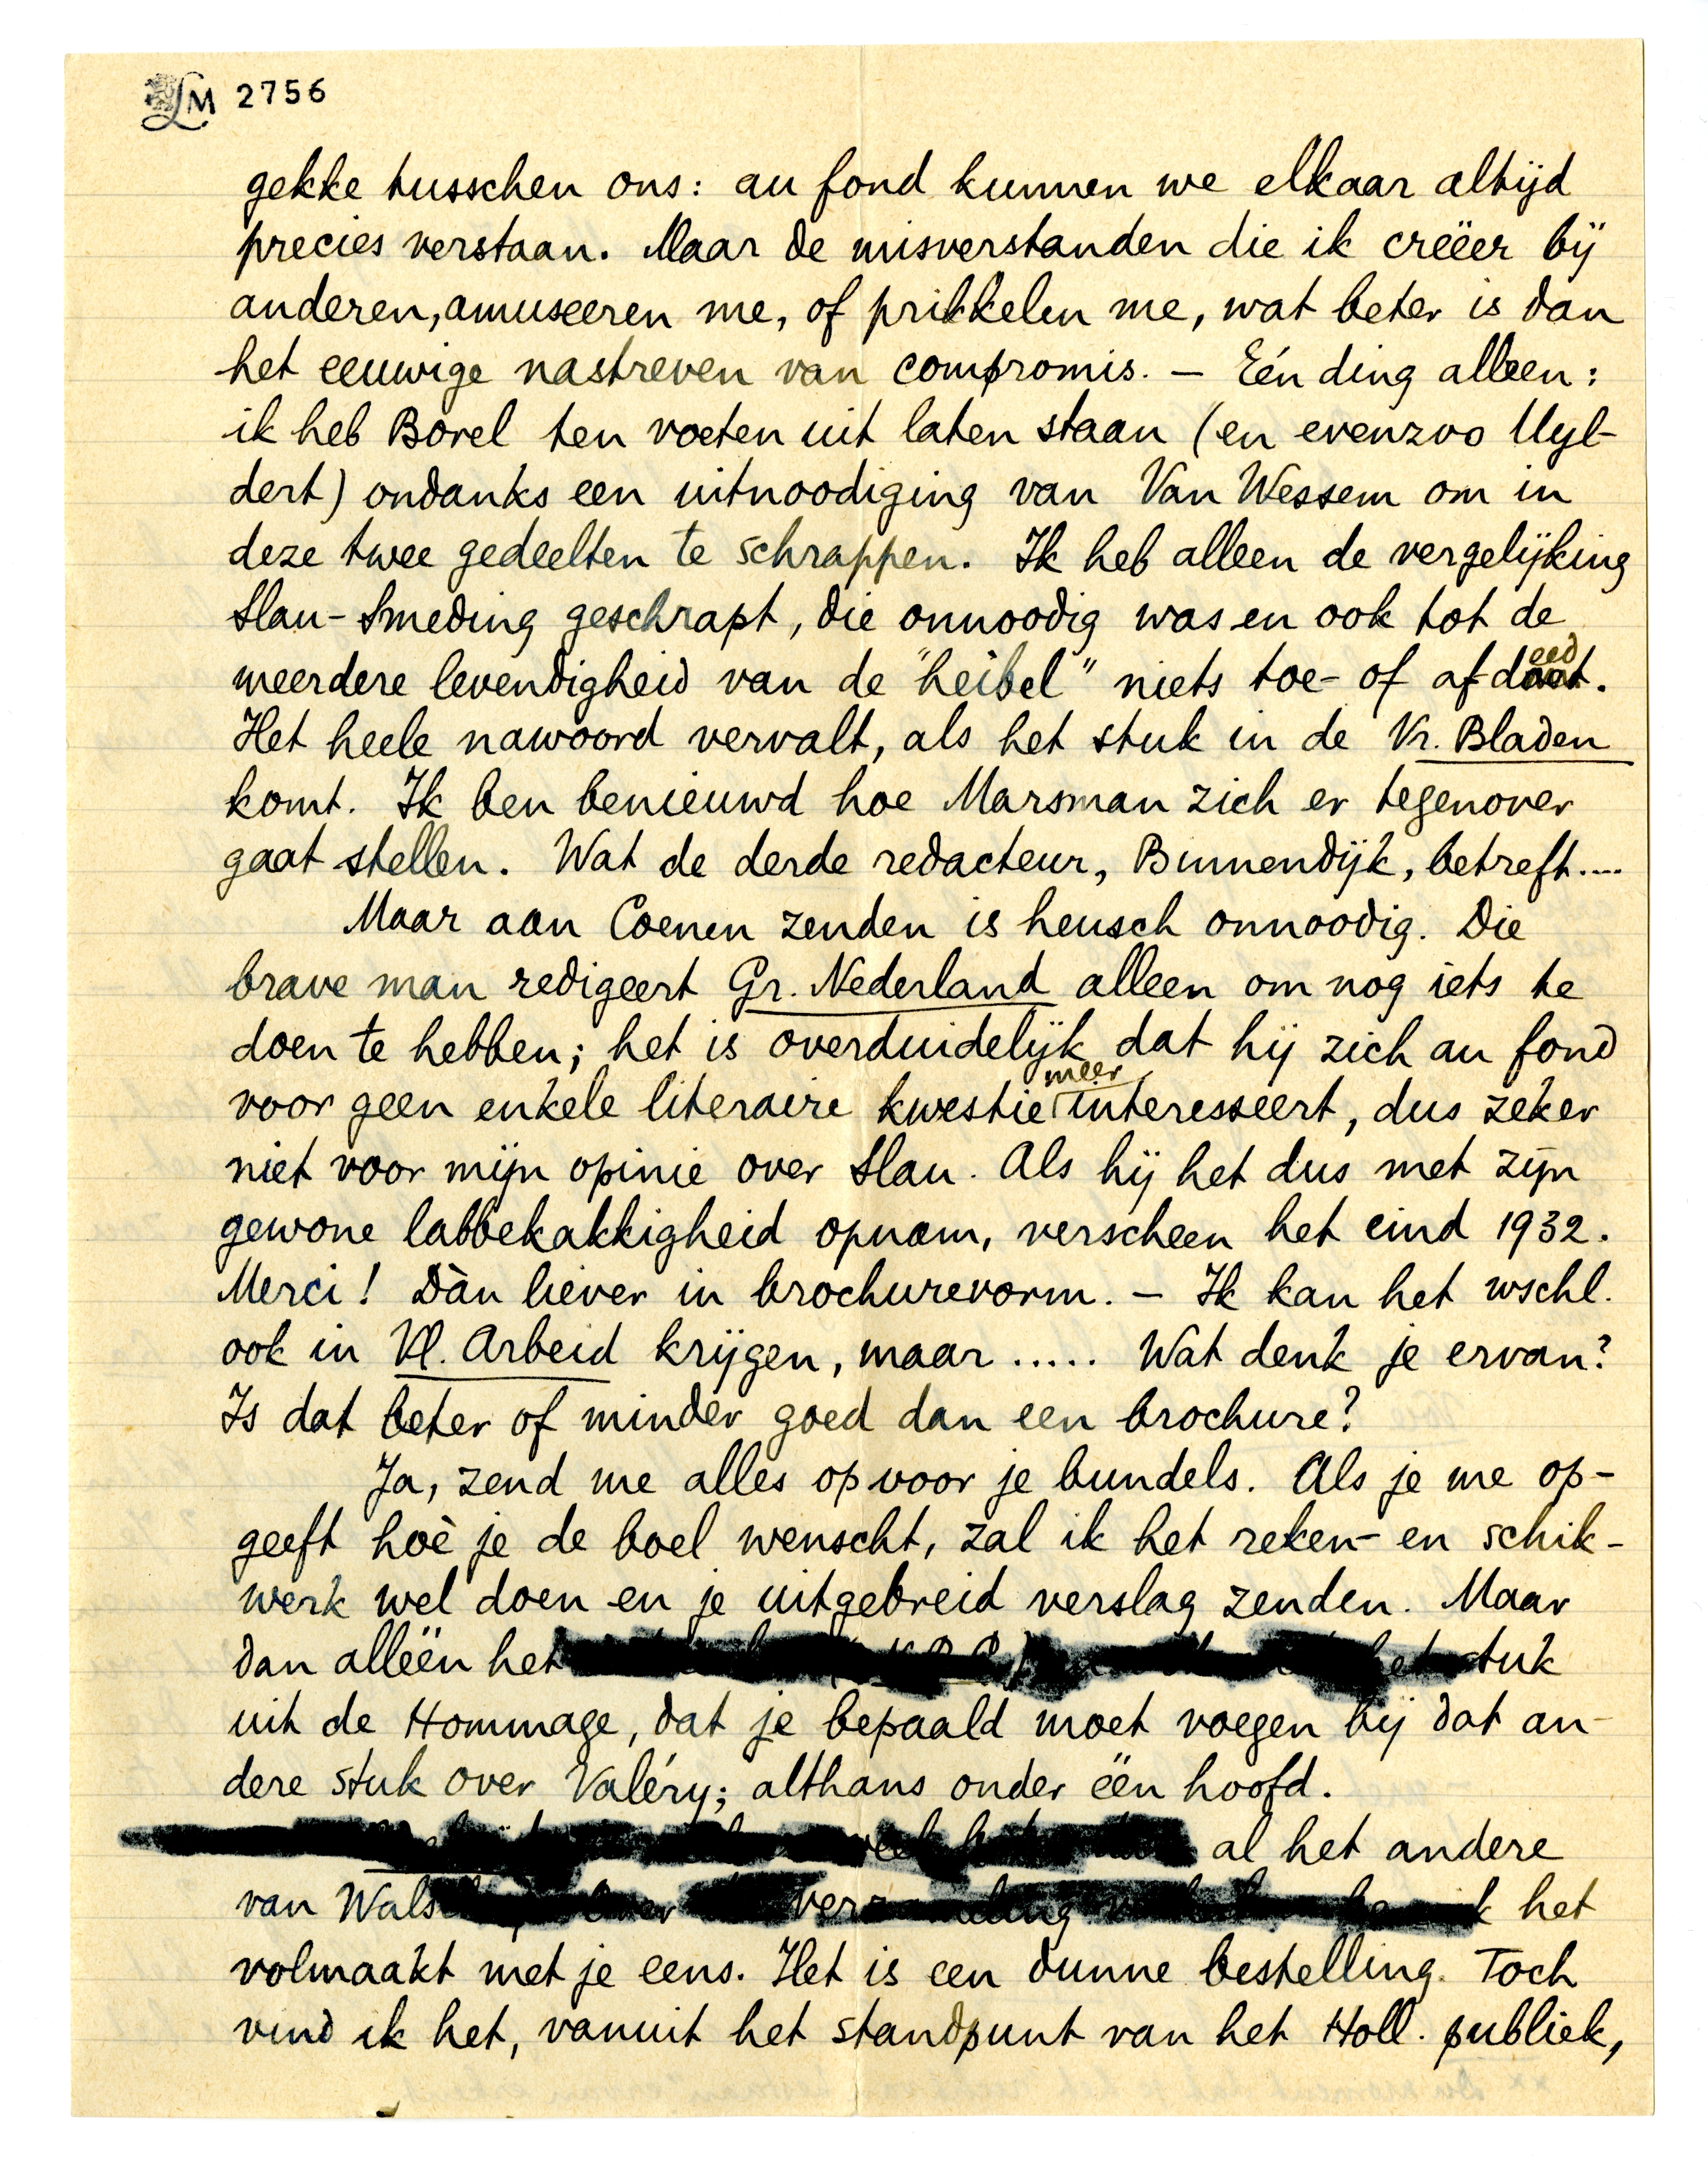 LM 2756
gekke tusschen ons: au fond kunnen we elkaar altijd
precies verstaan. Maar de misverstanden die ik creëer bij
anderen, amuseeren me, of prikkelen me, wat beter is dan
het eeuwige nastreven van compromis. – Eén ding alleen:
ik heb Borel ten voeten uit laten staan (en evenzoo Uyl-
dert) ondanks een uitnoodiging van Van Wessem om in
deze twee gedeelten te schrappen. Ik heb alleen de vergelijking
Slau-Smeding geschrapt, die onnoodig was en ook tot de
meerdere levendigheid van de "heibel" niets toe- of afdeed.
Het heele nawoord vervalt, als het stuk in de Vr. Bladen
komt. Ik ben benieuwd hoe Marsman zich er tegenover
gaat stellen. Wat de derde redacteur, Binnendijk, betreft....
Maar aan Coenen zenden is heusch onnoodig. Die
brave man redigeert Gr. Nederland alleen om nog iets te
doen te hebben; het is overduidelijk dat hij zich au fond
voor geen enkele literaire kwestie meer interesseert, dus zeker
niet voor mijn opinie over Slau. Als hij het dus met zijn
gewone labbekakkigheid opnam, verscheen het eind 1932.
Merci! Dàn liever in brochurevorm. – Ik kan het wschl.
ook in Vl. Arbeid krijgen, maar ..... Wat denk je ervan?
Is dat beter of minder goed dan een brochure?
Ja, zend me alles op voor je bundels. Als je me op-
geeft hoè je de boel wenscht, zal ik het reken- en schik-
werk wel doen en je uitgebreid verslag zenden. Maar
dan alléén het stuk
uit de Hommage, dat je bepaald moet voegen bij dat an-
dere stuk over Valéry; althans onder één hoofd.
al het andere
van het
volmaakt met je eens. Het is een dunne bestelling. Toch
vind ik het, vanuit het standpunt van het Holl. publiek,